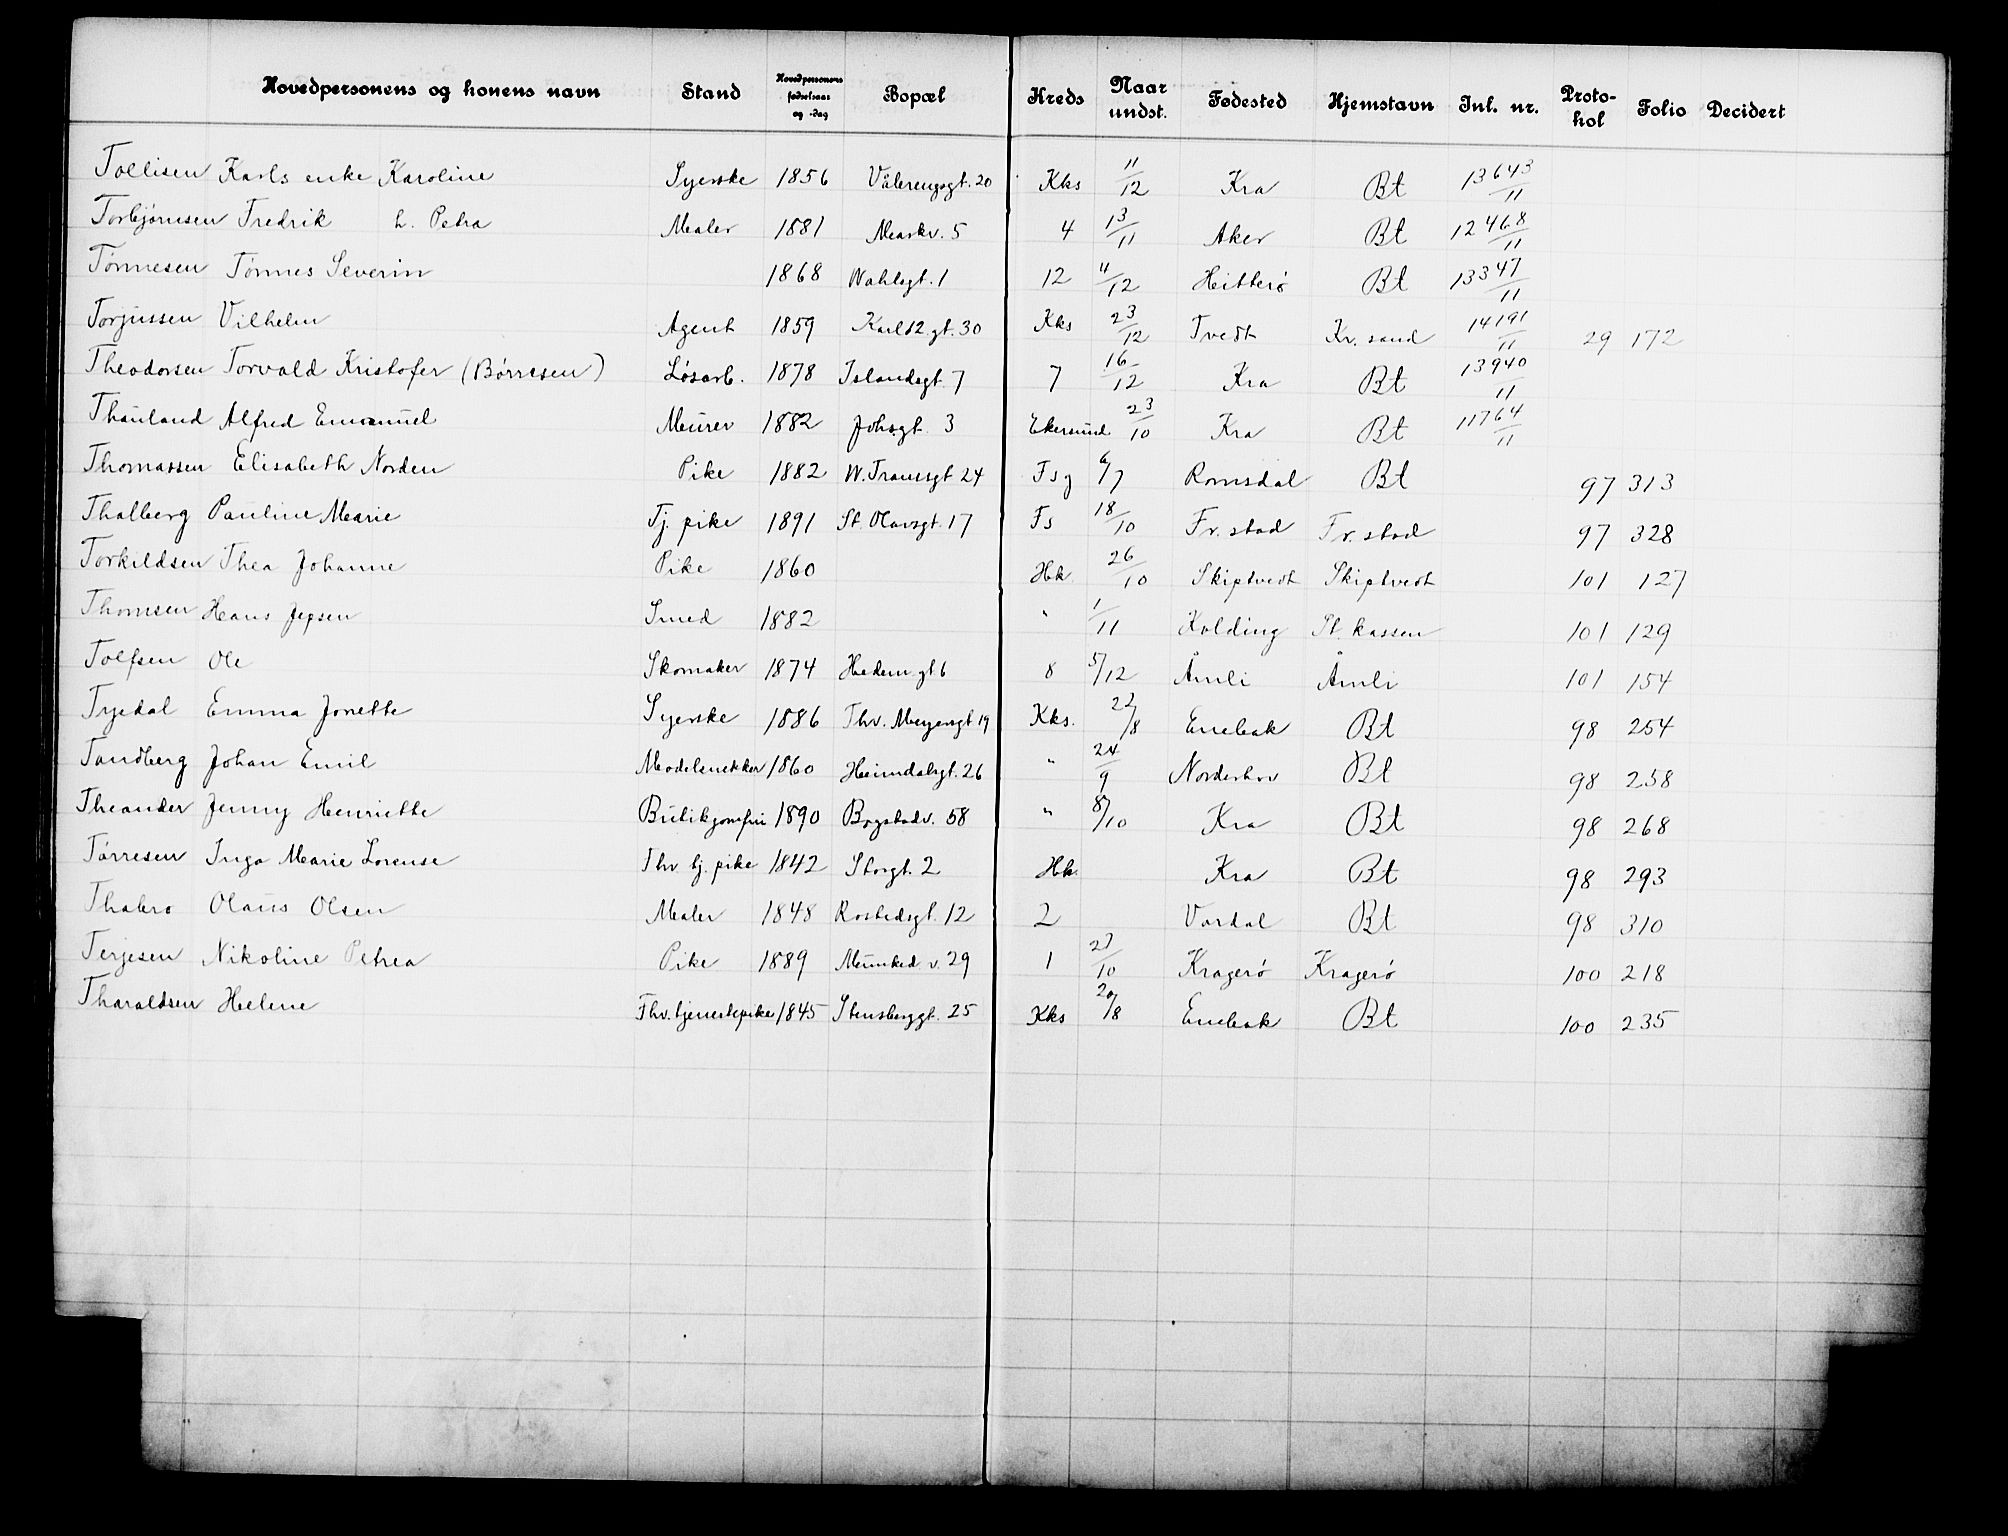 Hovedpersonens og konens navn Stand Hovedpersonens fødselsaar og -dag Bopæl Kreds Naar undst. Fødested Hjemstavn Inl. nr. Protokol Folio Decidert
Tollisen Karls enke Karoline Syerske 1856 Vålerengsgt. 20 Kks 11/12 Kra Bt 13643/11
Torbjørnsen Fredrik h. Petra Maler 1881 Markv. 5 4 13/11 Aker Bt 12468/11
Tønnesen Tønnes Severin 1868 Wahlsgt. 1 12 4/12 Hitterø Bt 13347/11
Torjussen Vilhelm Agent 1859 Karl 12 gt. 30 Kks 23/12 Tvedt Kr. sand 14191/11 29 172
Theodorsen Torvald Kristofer (Børresen) Løsarb. 1878 Islandsgt. 7 7 16/12 Kra Bt 13940/11
Thauland Alfred Emanuel Murer 1882 Johsgt. 3 Ekersund 23/10 Kra Bt 11764/11
Thomassen Elisabeth Norden Pike 1882 W. Tranesgt 24 Fsg 6/7 Romsdal Bt 97 313
Thalberg Pauline Marie Tj. pike 1891 St. Olavsgt. 17 Fs 18/10 Fr. stad Fr. stad 97 328
Torkildsen Thea Johanne Pike 1860 Hk 26/10 Skiptvedt Skiptvedt 101 127
Thomsen Hans Jepsen Smed 1882 " 1/11 Kolding St. kassen 101 129
Tolfsen Ole Skomaker 1874 Hedem. gt 6 8 5/12 Åmli Åmli 101 154
Tyedal Emma Jonette Syerske 1886 Thv. Meyersgt 19 Kks. 23/8 Enebak Bt 98 254
Tandberg Johan Emil Modelsnekker 1860 Heimdalsgt. 26 " 24/9 Norderhov Bt 98 258
Theander Jenny Henriette Butikjomfru 1890 Bogstadv. 58 " 8/10 Kra Bt 98 268
Tørresen Inga Marie Lorense Fhv tj. pike 1842 Storgt. 2 Hk. Kra Bt 98 293
Thabro Olaus Olsen Maler 1848 Rostedsgt. 12 2 Vardal Bt 98 310
Terjesen Nikoline Petrea Pike 1889 Munked. v. 29 1 27/10 Kragerø Kragerø 100 218
Tharaldsen Helene Fhv. tjenestepike 1845 Stensberggt. 25 Kks 20/8 Enebak Bt 100 235